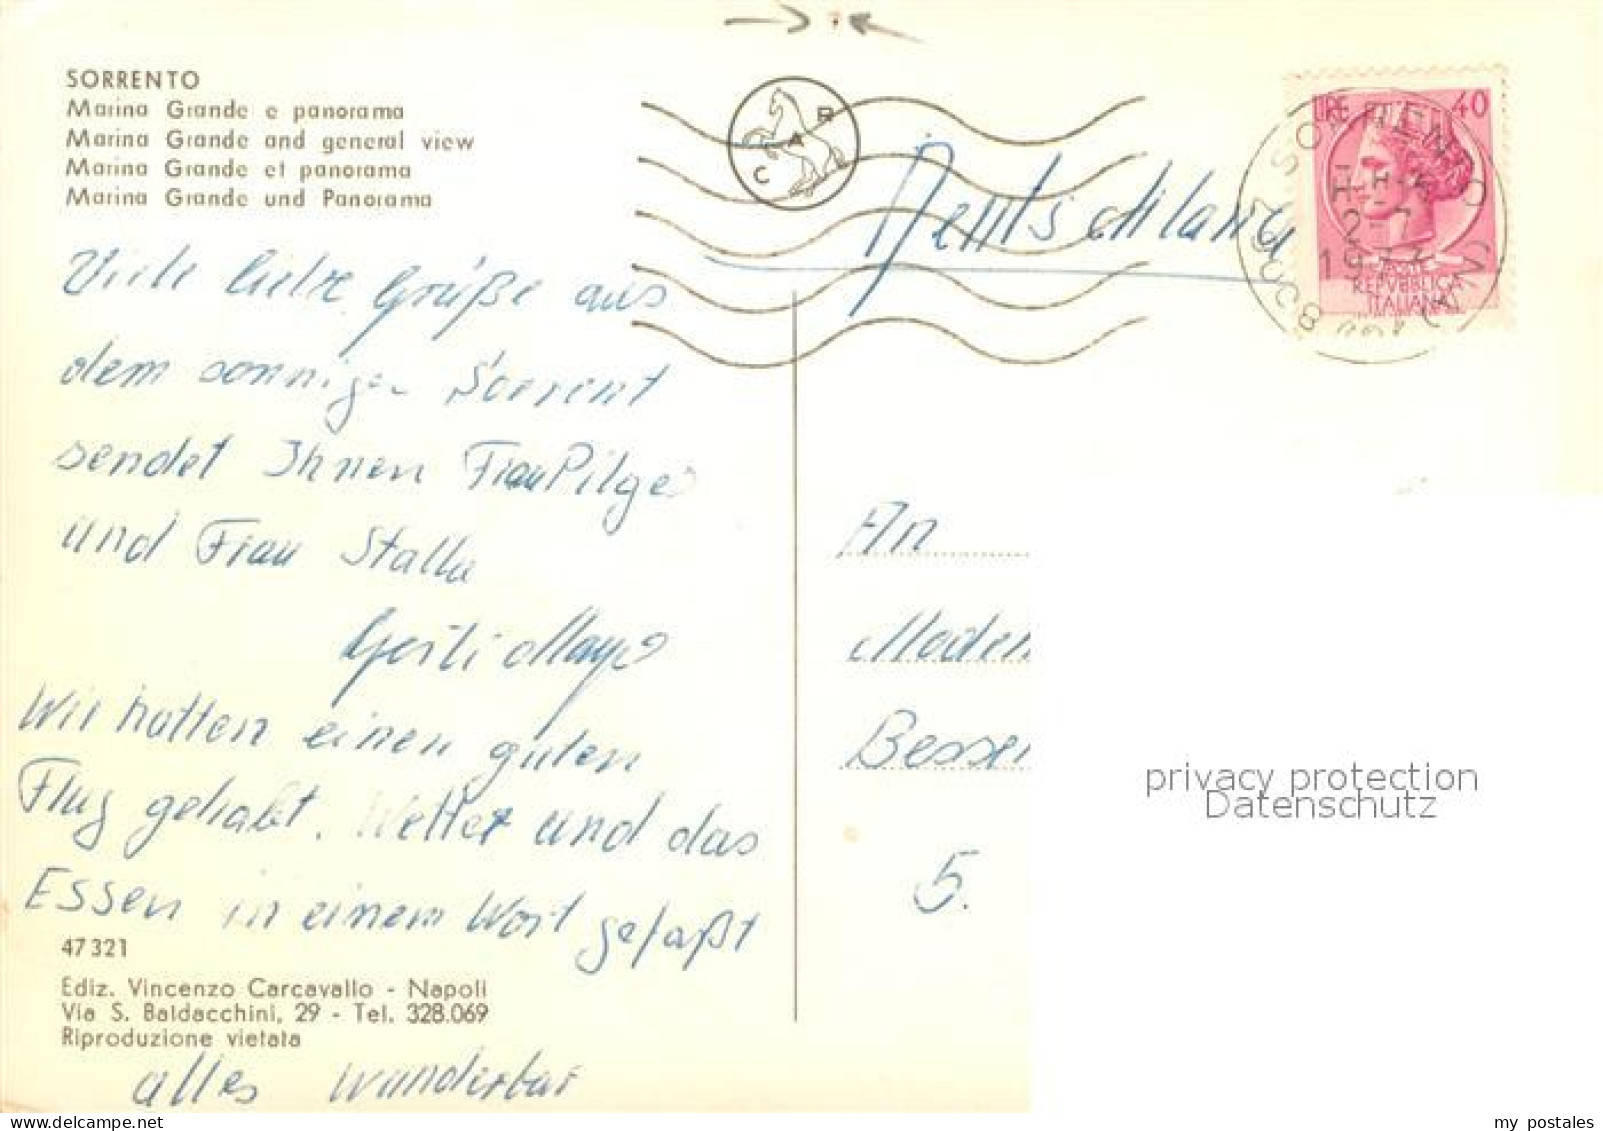 SORRENTO
Marina Grande e panorama
Marina Grande and general view
Marina Grande et panorama
Marina Grande und Panorama
CAR
Deutschland
LIRE 40
SORRENTO
2-7
POSTE
REPVBBLICA
ITALIANA
Viele liebe Grüße aus
dem sonnigen Sorrent
sendet Ihnen Frau Pilger
und Frau Stalla
Wir hatten einen guten
Flug gehabt. Wetter und das
Essen in einem Wort gefaßt
alles wunderbar
47321
Ediz. Vincenzo Carcavallo - Napoli
Via S. Baldacchini, 29 - Tel. 328.069
Riproduzione vietata
An
Moden
Besser
5.
privacy protection
Datenschutz
my postales